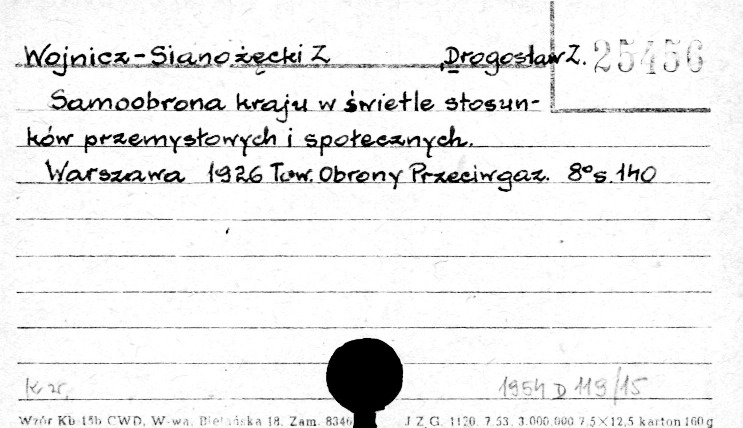 Wojnicz-Sianożęcki Z Drogosław Z. 25456
Samoobrona kraju w świetle stosun-
ków przemysłowych i społecznych.
Warszawa 1926 Tow. Obrony Przeciwgaz. 8° s. 140
1954 D 119/15
Wzór Kb 15b CWD, W-wa, Bielańska 18. Zam. 8346 J Z G. 1120. 7.53. 3.000.000 7,5×12,5 karton 160 g